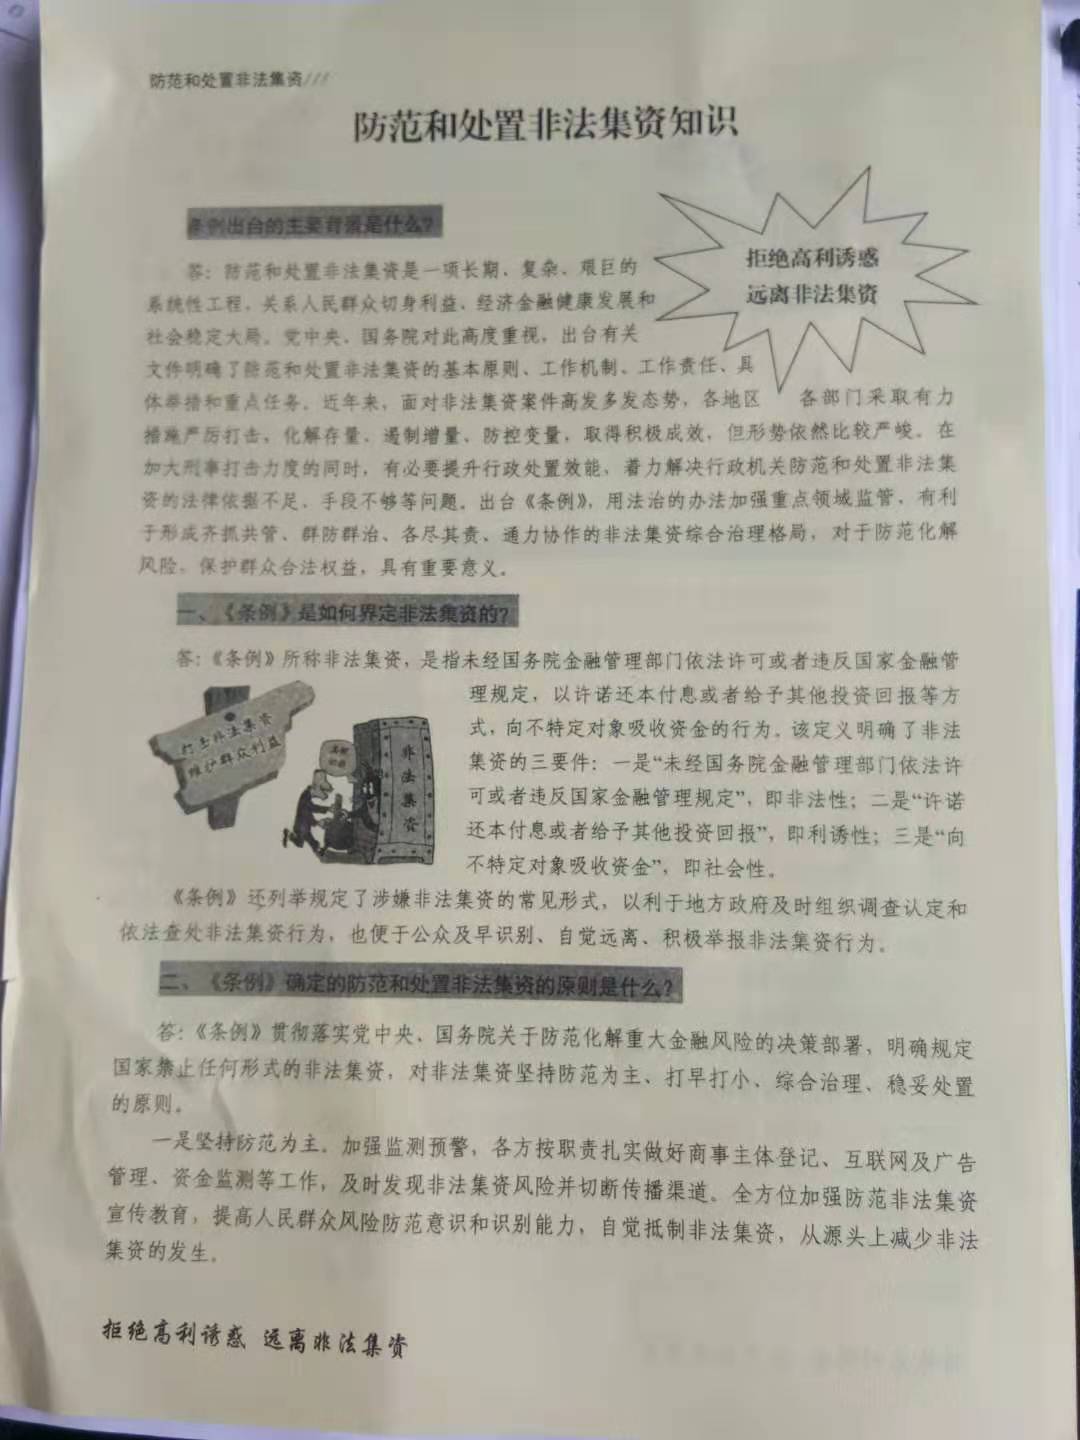 防范和处置非法集资///
防范和处置非法集资知识
条例出台的主要背景是什么?
拒绝高利诱惑
远离非法集资
答：防范和处置非法集资是一项长期、复杂、艰巨的
系统性工程，关系人民群众切身利益、经济金融健康发展和
社会稳定大局。党中央、国务院对此高度重视，出台有关
文件明确了防范和处置非法集资的基本原则、工作机制、工作责任、具
体举措和重点任务。近年来，面对非法集资案件高发多发态势，各地区 各部门采取有力
措施严厉打击，化解存量、遏制增量、防控变量，取得积极成效，但形势依然比较严峻。在
加大刑事打击力度的同时，有必要提升行政处置效能，着力解决行政机关防范和处置非法集
资的法律依据不足、手段不够等问题。出台《条例》，用法治的办法加强重点领域监管，有利
于形成齐抓共管、群防群治、各尽其责、通力协作的非法集资综合治理格局，对于防范化解
风险，保护群众合法权益，具有重要意义。
一、《条例》是如何界定非法集资的?
答：《条例》所称非法集资，是指未经国务院金融管理部门依法许可或者违反国家金融管
理规定，以许诺还本付息或者给予其他投资回报等方
式，向不特定对象吸收资金的行为。该定义明确了非法
集资的三要件：一是“未经国务院金融管理部门依法许
可或者违反国家金融管理规定”，即非法性；二是“许诺
还本付息或者给予其他投资回报”，即利诱性；三是“向
不特定对象吸收资金”，即社会性。
打击非法集资
维护群众利益
非法集资
《条例》还列举规定了涉嫌非法集资的常见形式，以利于地方政府及时组织调查认定和
依法查处非法集资行为，也便于公众及早识别、自觉远离、积极举报非法集资行为。
二、《条例》确定的防范和处置非法集资的原则是什么?
答：《条例》贯彻落实党中央、国务院关于防范化解重大金融风险的决策部署，明确规定
国家禁止任何形式的非法集资，对非法集资坚持防范为主、打早打小、综合治理、稳妥处置
的原则。
一是坚持防范为主。加强监测预警，各方按职责扎实做好商事主体登记、互联网及广告
管理、资金监测等工作，及时发现非法集资风险并切断传播渠道。全方位加强防范非法集资
宣传教育，提高人民群众风险防范意识和识别能力，自觉抵制非法集资，从源头上减少非法
集资的发生。
拒绝高利诱惑 远离非法集资